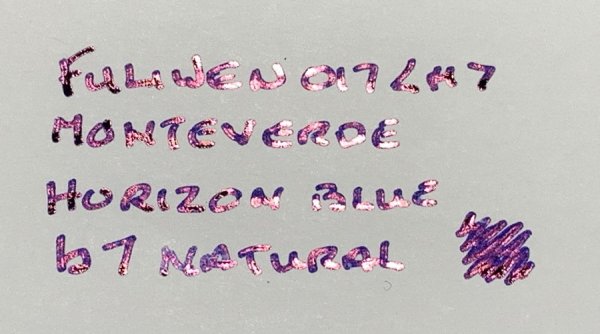 FULIWEN 017 L47
MONTEVERDE
HORIZON BLUE
b7 NATURAL